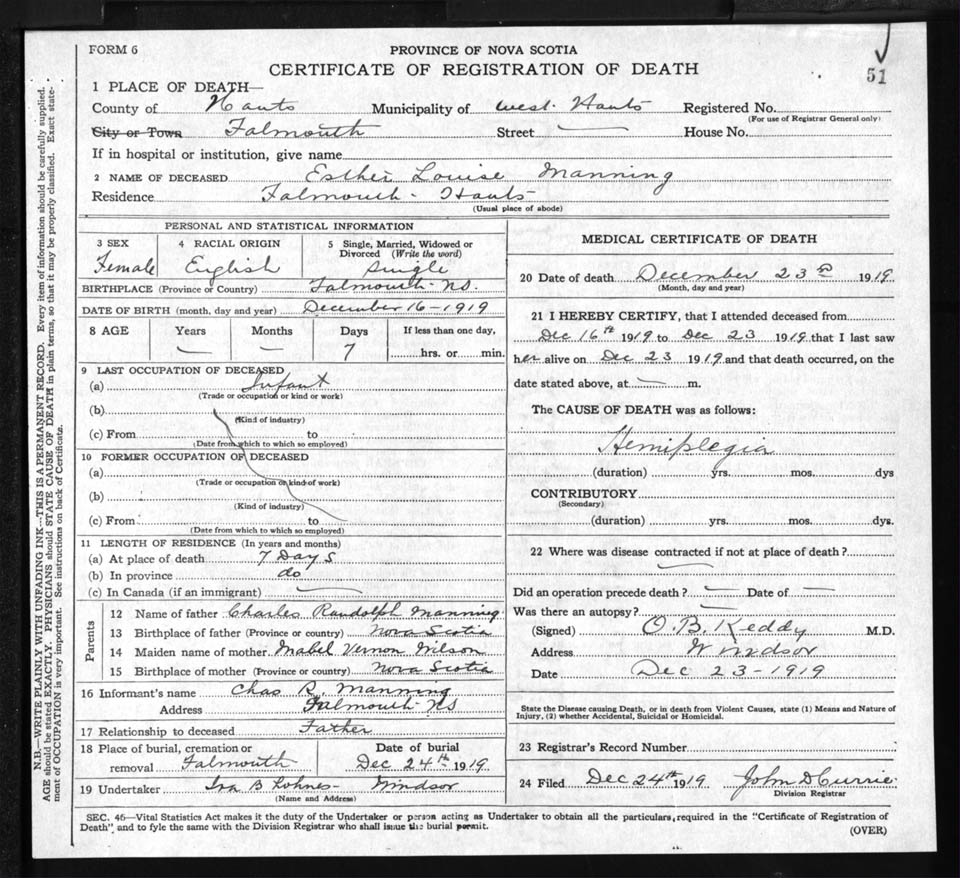 FORM 6
PROVINCE OF NOVA SCOTIA
CERTIFICATE OF REGISTRATION OF DEATH
51
1 PLACE OF DEATH—
County of Hants Municipality of West Hants Registered No.
(For use of Registrar General only)
City or Town Falmouth Street — House No.
If in hospital or institution, give name
2 NAME OF DECEASED Esther Louise Manning
Residence Falmouth - Hants
(Usual place of abode)
PERSONAL AND STATISTICAL INFORMATION
3 SEX 4 RACIAL ORIGIN 5 Single, Married, Widowed or
Divorced (Write the word)
Female English single
BIRTHPLACE (Province or Country) Falmouth N.S.
DATE OF BIRTH (month, day and year) December 16 - 1919
8 AGE Years Months Days If less than one day,
— — 7 hrs. or min.
9 LAST OCCUPATION OF DECEASED
(a) Infant
(Trade or occupation or kind or work)
(b)
(Kind of industry)
(c) From to
(Date from which to which so employed)
10 FORMER OCCUPATION OF DECEASED
(a)
(Trade or occupation or kind of work)
(b)
(Kind of industry)
(c) From to
(Date from which to which so employed)
11 LENGTH OF RESIDENCE (In years and months)
(a) At place of death 7 Days
(b) In province do
(c) In Canada (if an immigrant) —
Parents
12 Name of father Charles Randolph Manning
13 Birthplace of father (Province or country) Nova Scotia
14 Maiden name of mother Mabel Vernon Wilson
15 Birthplace of mother (Province or country) Nova Scotia
16 Informant's name Chas R. Manning
Address Falmouth NS
17 Relationship to deceased Father
18 Place of burial, cremation or Date of burial
removal Falmouth Dec 24th 1919
19 Undertaker Ira B Lohnes - Windsor
(Name and Address)
MEDICAL CERTIFICATE OF DEATH
20 Date of death December 23rd 1919
(Month, day and year)
21 I HEREBY CERTIFY, that I attended deceased from
Dec 16th 1919 to Dec 23 1919 that I last saw
her alive on Dec 23 1919 and that death occurred, on the
date stated above, at — m.
The CAUSE OF DEATH was as follows:
Hemiplegia
(duration) yrs. mos. dys
CONTRIBUTORY
(Secondary)
(duration) yrs. mos. dys.
22 Where was disease contracted if not at place of death?
—
Did an operation precede death? — Date of —
Was there an autopsy? —
(Signed) O. B. Keddy M.D.
Address Windsor
Date Dec 23 - 1919
State the Disease causing Death, or in death from Violent Causes, state (1) Means and Nature of
Injury, (2) whether Accidental, Suicidal or Homicidal.
23 Registrar's Record Number
24 Filed Dec 24th 1919 John D Currie
Division Registrar
SEC. 46—Vital Statistics Act makes it the duty of the Undertaker or person acting as Undertaker to obtain all the particulars required in the "Certificate of Registration of
Death", and to fyle the same with the Division Registrar who shall issue the burial permit.
(OVER)
N.B.—WRITE PLAINLY WITH UNFADING INK---THIS IS A PERMANENT RECORD. Every item of information should be carefully supplied.
AGE should be stated EXACTLY. PHYSICIANS should STATE CAUSE OF DEATH in plain terms, so that it may be properly classified. Exact state-
ment of OCCUPATION is very important. See instructions on back of Certificate.